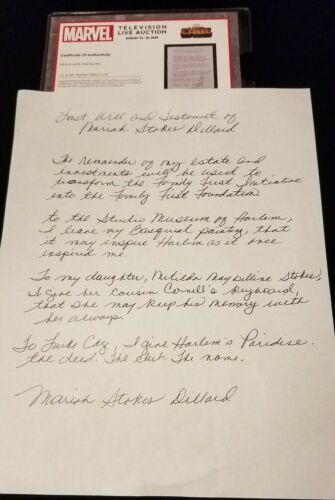 MARVEL
TELEVISION
LIVE AUCTION
Certificate Of Authenticity
Last Will and Testament of
Mariah Stokes Dillard
The remainder of my estate and
investments will be used to
transform the Family First Initiative
into the Family First Foundation
to the Studio Museum of Harlem,
I leave my Basquiat painting, that
it may inspire Harlem as it once
inspired me.
To my daughter, Matilda Maybelline Stokes,
I give her cousin Cornell's keyboard,
that she may keep his memory with
her always.
To Luke Cage, I give Harlem's Paridise.
the deed. The Suit. The name.
Mariah Stokes Dillard